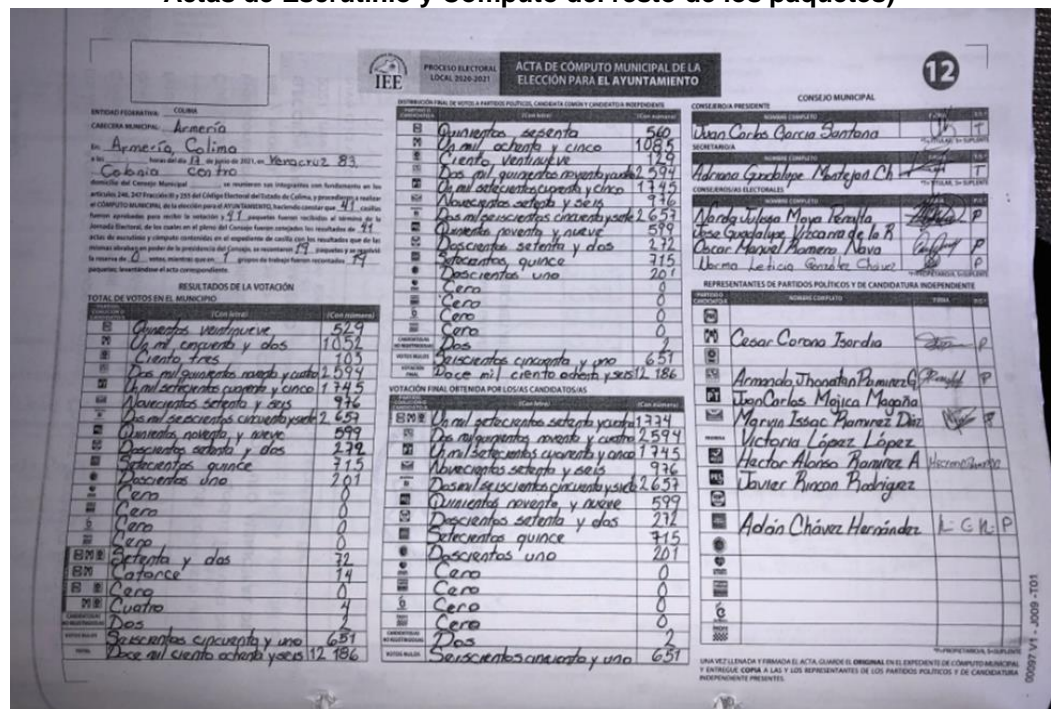 Actas de Escrutinio y Cómputo del resto de los paquetes)
IEE
PROCESO ELECTORAL
LOCAL 2020-2021
ACTA DE CÓMPUTO MUNICIPAL DE LA
ELECCIÓN PARA EL AYUNTAMIENTO
12
ENTIDAD FEDERATIVA: COLIMA
CABECERA MUNICIPAL: Armería
En: Armería, Colima
a las horas del día 13 de junio de 2021, en Veracruz 83
Colonia centro
domicilio del Consejo Municipal se reunieron sus integrantes con fundamento en los
artículos 246, 247 Fracción III y 253 del Código Electoral del Estado de Colima, y procedieron a realizar
el CÓMPUTO MUNICIPAL de la elección para el AYUNTAMIENTO, haciendo constar que 41 casillas
fueron aprobadas para recibir la votación y 41 paquetes fueron recibidos al término de la
Jornada Electoral, de los cuales en el pleno del Consejo fueron cotejados los resultados de 41
actas de escrutinio y cómputo contenidas en el expediente de casilla con los resultados que de las
mismas obraban en poder de la presidencia del Consejo, se recontaron 19 paquetes y se resolvió
la reserva de 0 votos, mientras que en 1 grupos de trabajo fueron recontados 19
paquetes; levantándose el acta correspondiente.
RESULTADOS DE LA VOTACIÓN
TOTAL DE VOTOS EN EL MUNICIPIO
(Con letra) (Con número)
Quinientos veintinueve 529
Un mil cincuenta y dos 1052
Ciento tres 103
Dos mil quinientos noventa y cuatro 2 594
Un mil setecientos cuarenta y cinco 1 745
Novecientos setenta y seis 976
Dos mil seiscientos cincuenta y siete 2 657
Quinientos noventa y nueve 599
Doscientos setenta y dos 272
Setecientos quince 715
Doscientos uno 201
Cero 0
Cero 0
Cero 0
Cero 0
Setenta y dos 72
Catorce 14
Cero 0
Cuatro 4
Dos 2
VOTOS NULOS Seiscientos cincuenta y uno 651
TOTAL Doce mil ciento ochenta y seis 12 186
DISTRIBUCIÓN FINAL DE VOTOS A PARTIDOS POLÍTICOS, CANDIDATA COMÚN Y CANDIDATO/A INDEPENDIENTE
(Con letra) (Con número)
Quinientos sesenta 560
Un mil ochenta y cinco 1085
Ciento, ventinueve 129
Dos mil quinientos noventa y cuatro 2 594
Un mil setecientos cuarenta y cinco 1 745
Novecientos setenta y seis 976
Dos mil seiscientos cincuenta y siete 2 657
Quinientos noventa y nueve 599
Doscientos setenta y dos 272
Setecientos, quince 715
Doscientos uno 201
Cero 0
Cero 0
Cero 0
Cero 0
Dos 2
VOTOS NULOS Seiscientos cincuenta y uno 651
VOTACIÓN FINAL Doce mil ciento ochenta y seis 12 186
VOTACIÓN FINAL OBTENIDA POR LOS/AS CANDIDATOS/AS
(Con letra) (Con número)
Un mil setecientos setenta y cuatro 1774
Dos mil quinientos noventa y cuatro 2594
Un mil setecientos cuarenta y cinco 1 745
Novecientos setenta y seis 976
Dos mil seiscientos cincuenta y siete 2 657
Quinientos noventa y nueve 599
Doscientos setenta y dos 272
Setecientos quince 715
Doscientos uno 201
Cero 0
Cero 0
Cero 0
Cero 0
Dos 2
VOTOS NULOS Seiscientos cincuenta y uno 651
CONSEJO MUNICIPAL
CONSEJERO/A PRESIDENTE
NOMBRE COMPLETO
Juan Carlos García Santana T
SECRETARIO/A
NOMBRE COMPLETO
Adriana Guadalupe Montejan Ch T
CONSEJEROS/AS ELECTORALES
NOMBRE COMPLETO
Norda Julissa Moya Peralta P
Jose Guadalupe Vizcarra de la R
Oscar Manuel Romero Nava P
Norma Leticia González Chávez P
REPRESENTANTES DE PARTIDOS POLÍTICOS Y DE CANDIDATURA INDEPENDIENTE
NOMBRE COMPLETO
Cesar Corona Isordia P
Armando Jhonatan Ramirez G P
PT Juan Carlos Mojica Magaña
Marvin Issac Ramirez Diaz
morena Victoria López López
Hector Alonso Ramirez A
PES Javier Rincon Rodriguez
Adán Chávez Hernández P
UNA VEZ LLENADA Y FIRMADA EL ACTA, GUARDE EL ORIGINAL EN EL EXPEDIENTE DE CÓMPUTO MUNICIPAL
Y ENTREGUE COPIA A LAS Y LOS REPRESENTANTES DE LOS PARTIDOS POLÍTICOS Y DE CANDIDATURA
INDEPENDIENTE PRESENTES.
00097 V1 - J009 - T01